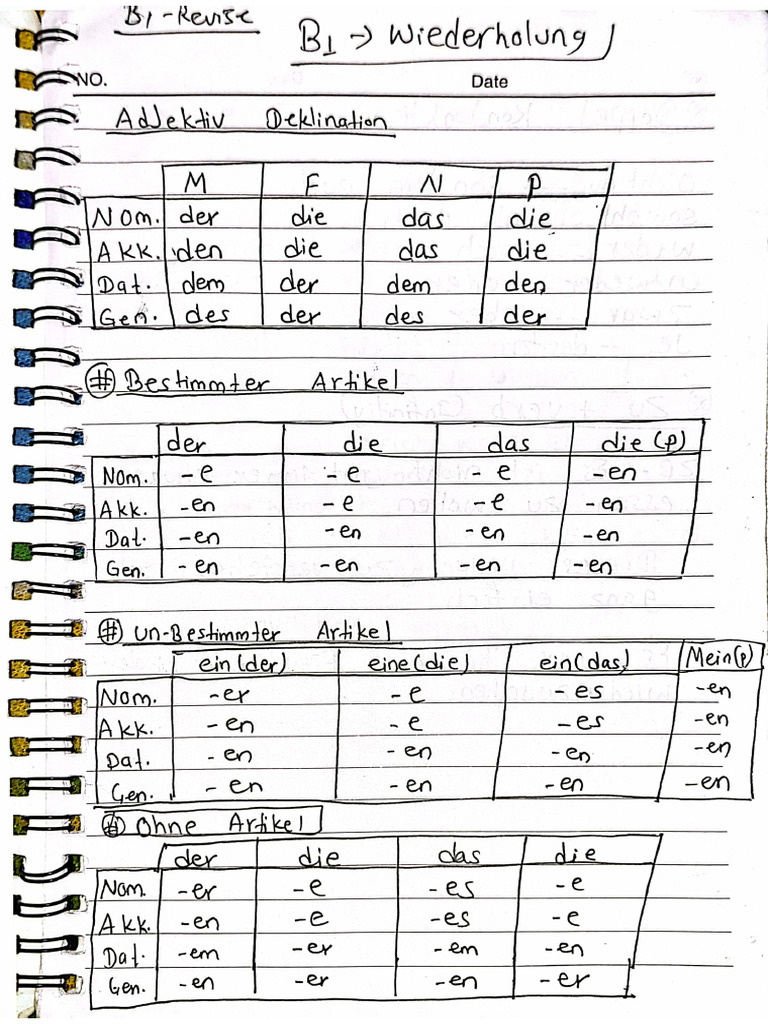 B1-Revise
B1 → Wiederholung
NO. Date
Adjektiv Deklination
M F N P
Nom. der die das die
Akk. den die das die
Dat. dem der dem den
Gen. des der des der
# Bestimmter Artikel
der die das die (p)
Nom. -e -e -e -en
Akk. -en -e -e -en
Dat. -en -en -en -en
Gen. -en -en -en -en
# un-Bestimmter Artikel
ein (der) eine (die) ein (das) Mein (p)
Nom. -er -e -es -en
Akk. -en -e -es -en
Dat. -en -en -en -en
Gen. -en -en -en -en
# Ohne Artikel
der die das die
Nom. -er -e -es -e
Akk. -en -e -es -e
Dat. -em -er -em -en
Gen. -en -er -en -er